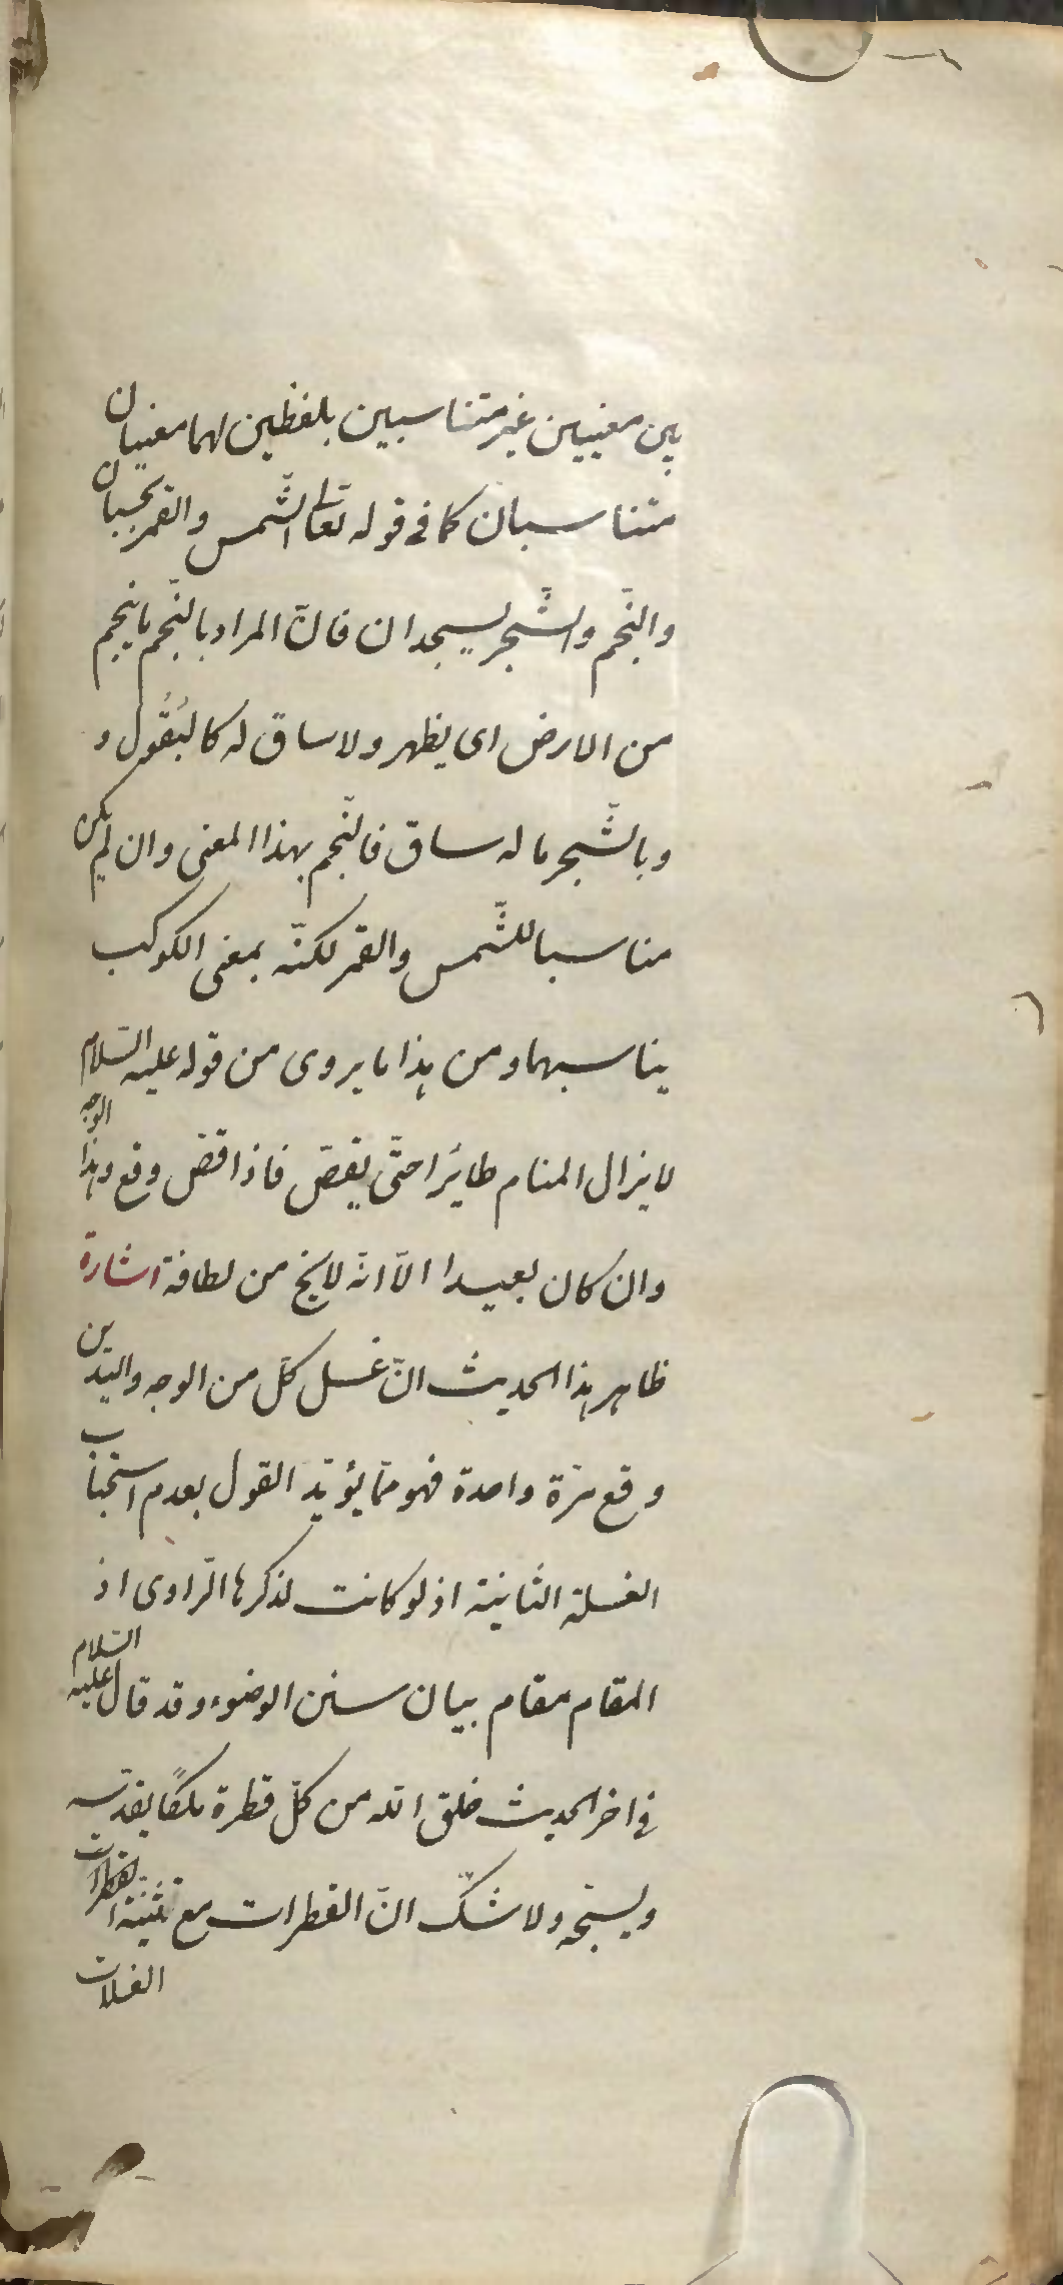 بين معنيين غير متناسبين بلفظين لهما معنيان
متناسبان كما فى قوله تعالى الشّمس والقمر بحسبان
والنّجم والشّجر يسجدان فانّ المراد بالنّجم ما ينجم
من الارض اى يظهر ولا ساق له كالبُقُول و
وبالشّجر ما له ساق فالنّجم بهذا المعنى وان لم يكن
مناسبا للشّمس والقمر لكنّه بمعنى الكوكب
يناسبهما ومن هذا ما يروى من قوله عليه السّلام
لا يزال المنام طائرا حتّى يقصّ فاذا قصّ وقع وهذا الوجه
وان كان بعيدا الّا انّه لا يخ من لطافة اشارة
ظاهر هذا الحديث انّ غسل كلّ من الوجه واليدين
وقع مرّة واحدة فهو ممّا يؤيّد القول بعدم استحباب
الغسلة الثانية اذ لو كانت لذكرها الرّاوى اذ
المقام مقام بيان سنن الوضوء وقد قال عليه السّلام
فى اخر الحديث خلق الله من كلّ قطرة ملكًا يقدّسه
ويسبّحه ولا شكّ انّ القطرات مع تثنية
الغسلات